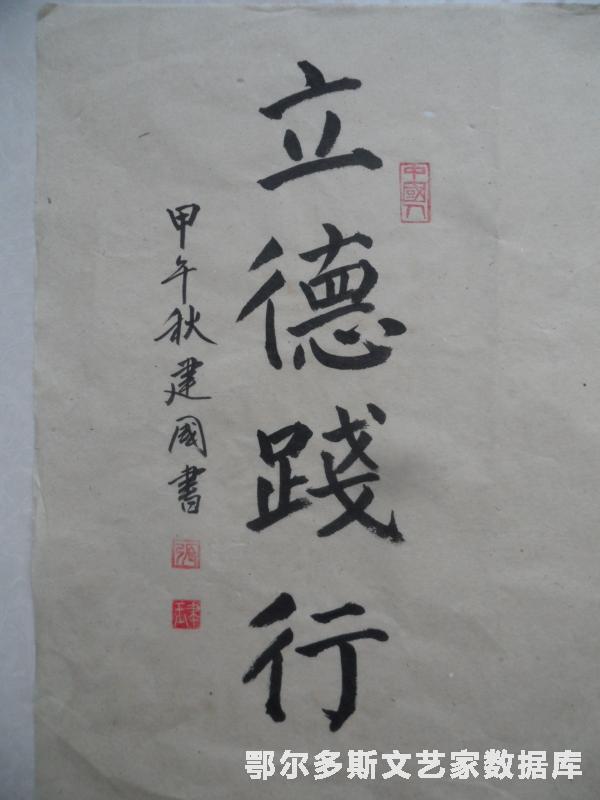 立德踐行
中國人
甲午秋建國書
張
鄂尔多斯文艺家数据库